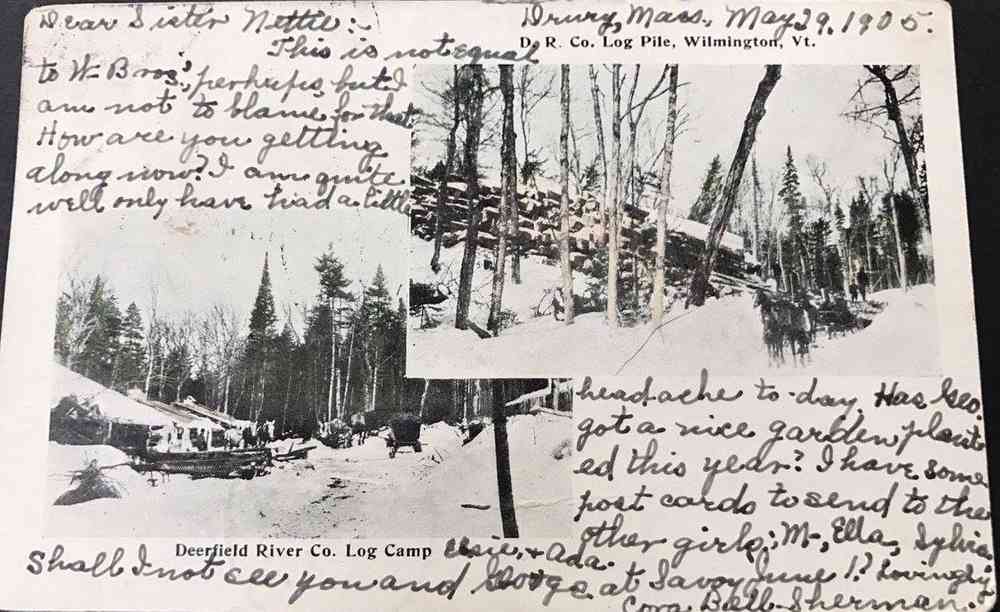 Drury, Mass., May 29, 1905.
Dear Sister Nettie:-
D. R. Co. Log Pile, Wilmington, Vt.
This is not equal
to W Bros', perhaps, but I
am not to blame for that.
How are you getting
along now? I am quite
well only have had a little
headache to-day. Has Geo.
got a nice garden plant-
ed this year? I have some
post cards to send to the
other girls; M-, Ella, Sylvia
Elsie, & Ada.
Deerfield River Co. Log Camp
Shall I not see you and George at Savoy June 1? Lovingly
Cora Bell Sherman.